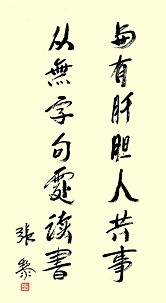 与有肝胆人共事
从無字句處讀書
張黎